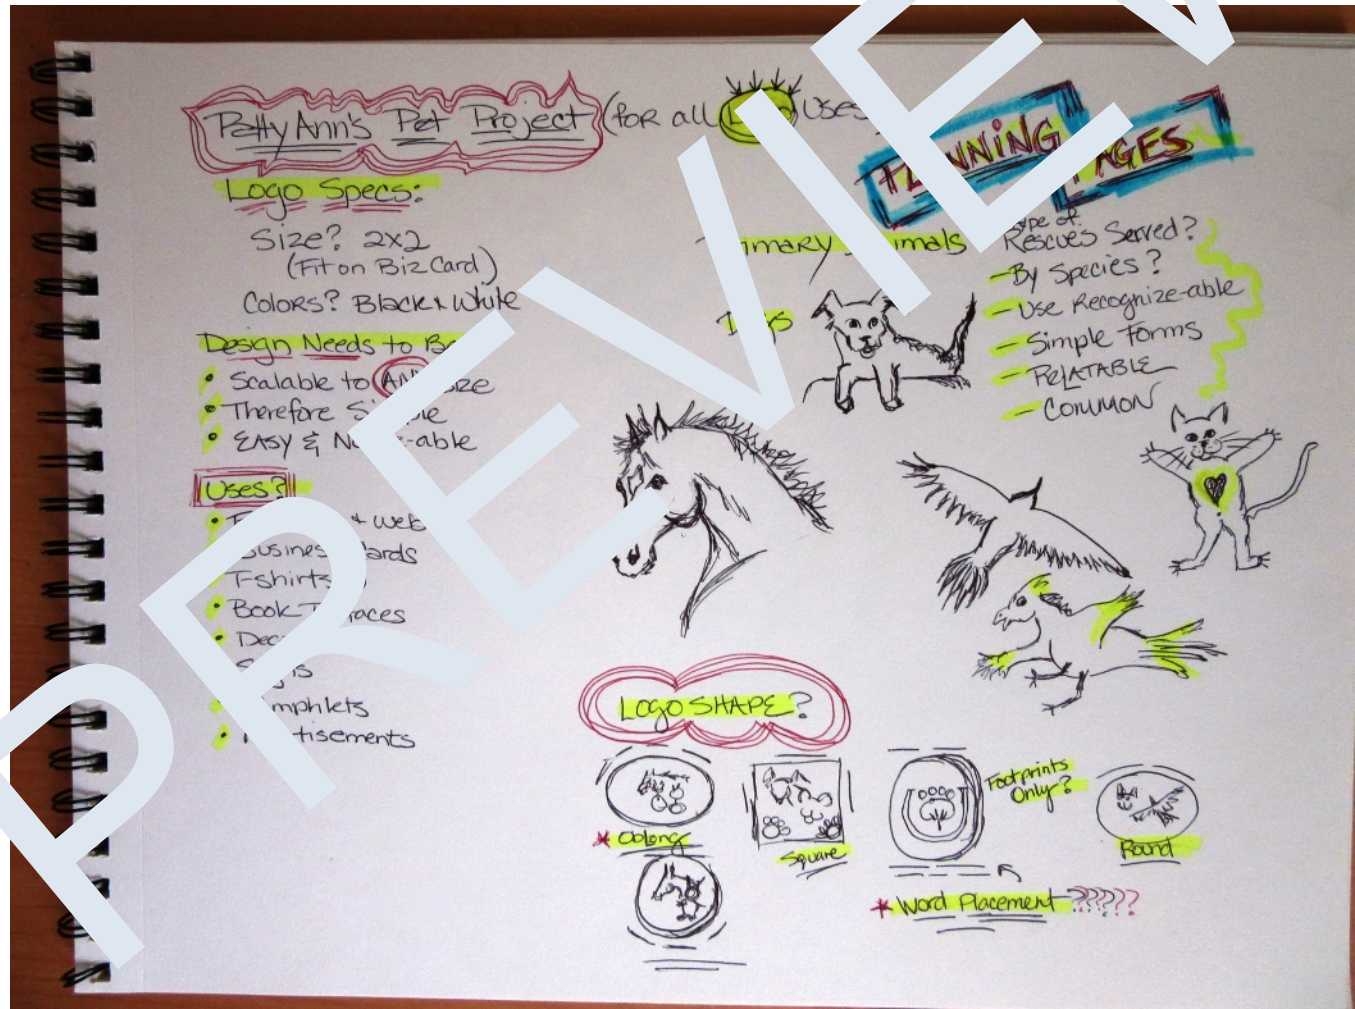 Patty Ann's Pet Project (for all Uses
PLANNING PAGES
Logo Specs:
Size? 2x2
(Fit on Biz Card)
Colors? Black & White
Design Needs to Be
• Scalable to ANY size
• Therefore Simple
• EASY & Notice-able
Uses?
• & web
Business Cards
T-shirts
• Book
•
Signs
Pamphlets
• Advertisements
Primary Animals
Dogs
Type of
Rescues Served?
- By Species?
- Use Recognize-able
- Simple Forms
- RELATABLE
- COMMON
LOGO SHAPE?
* Oblong
Square
Footprints
Only?
Round
* Word Placement ??????
PREVIEW